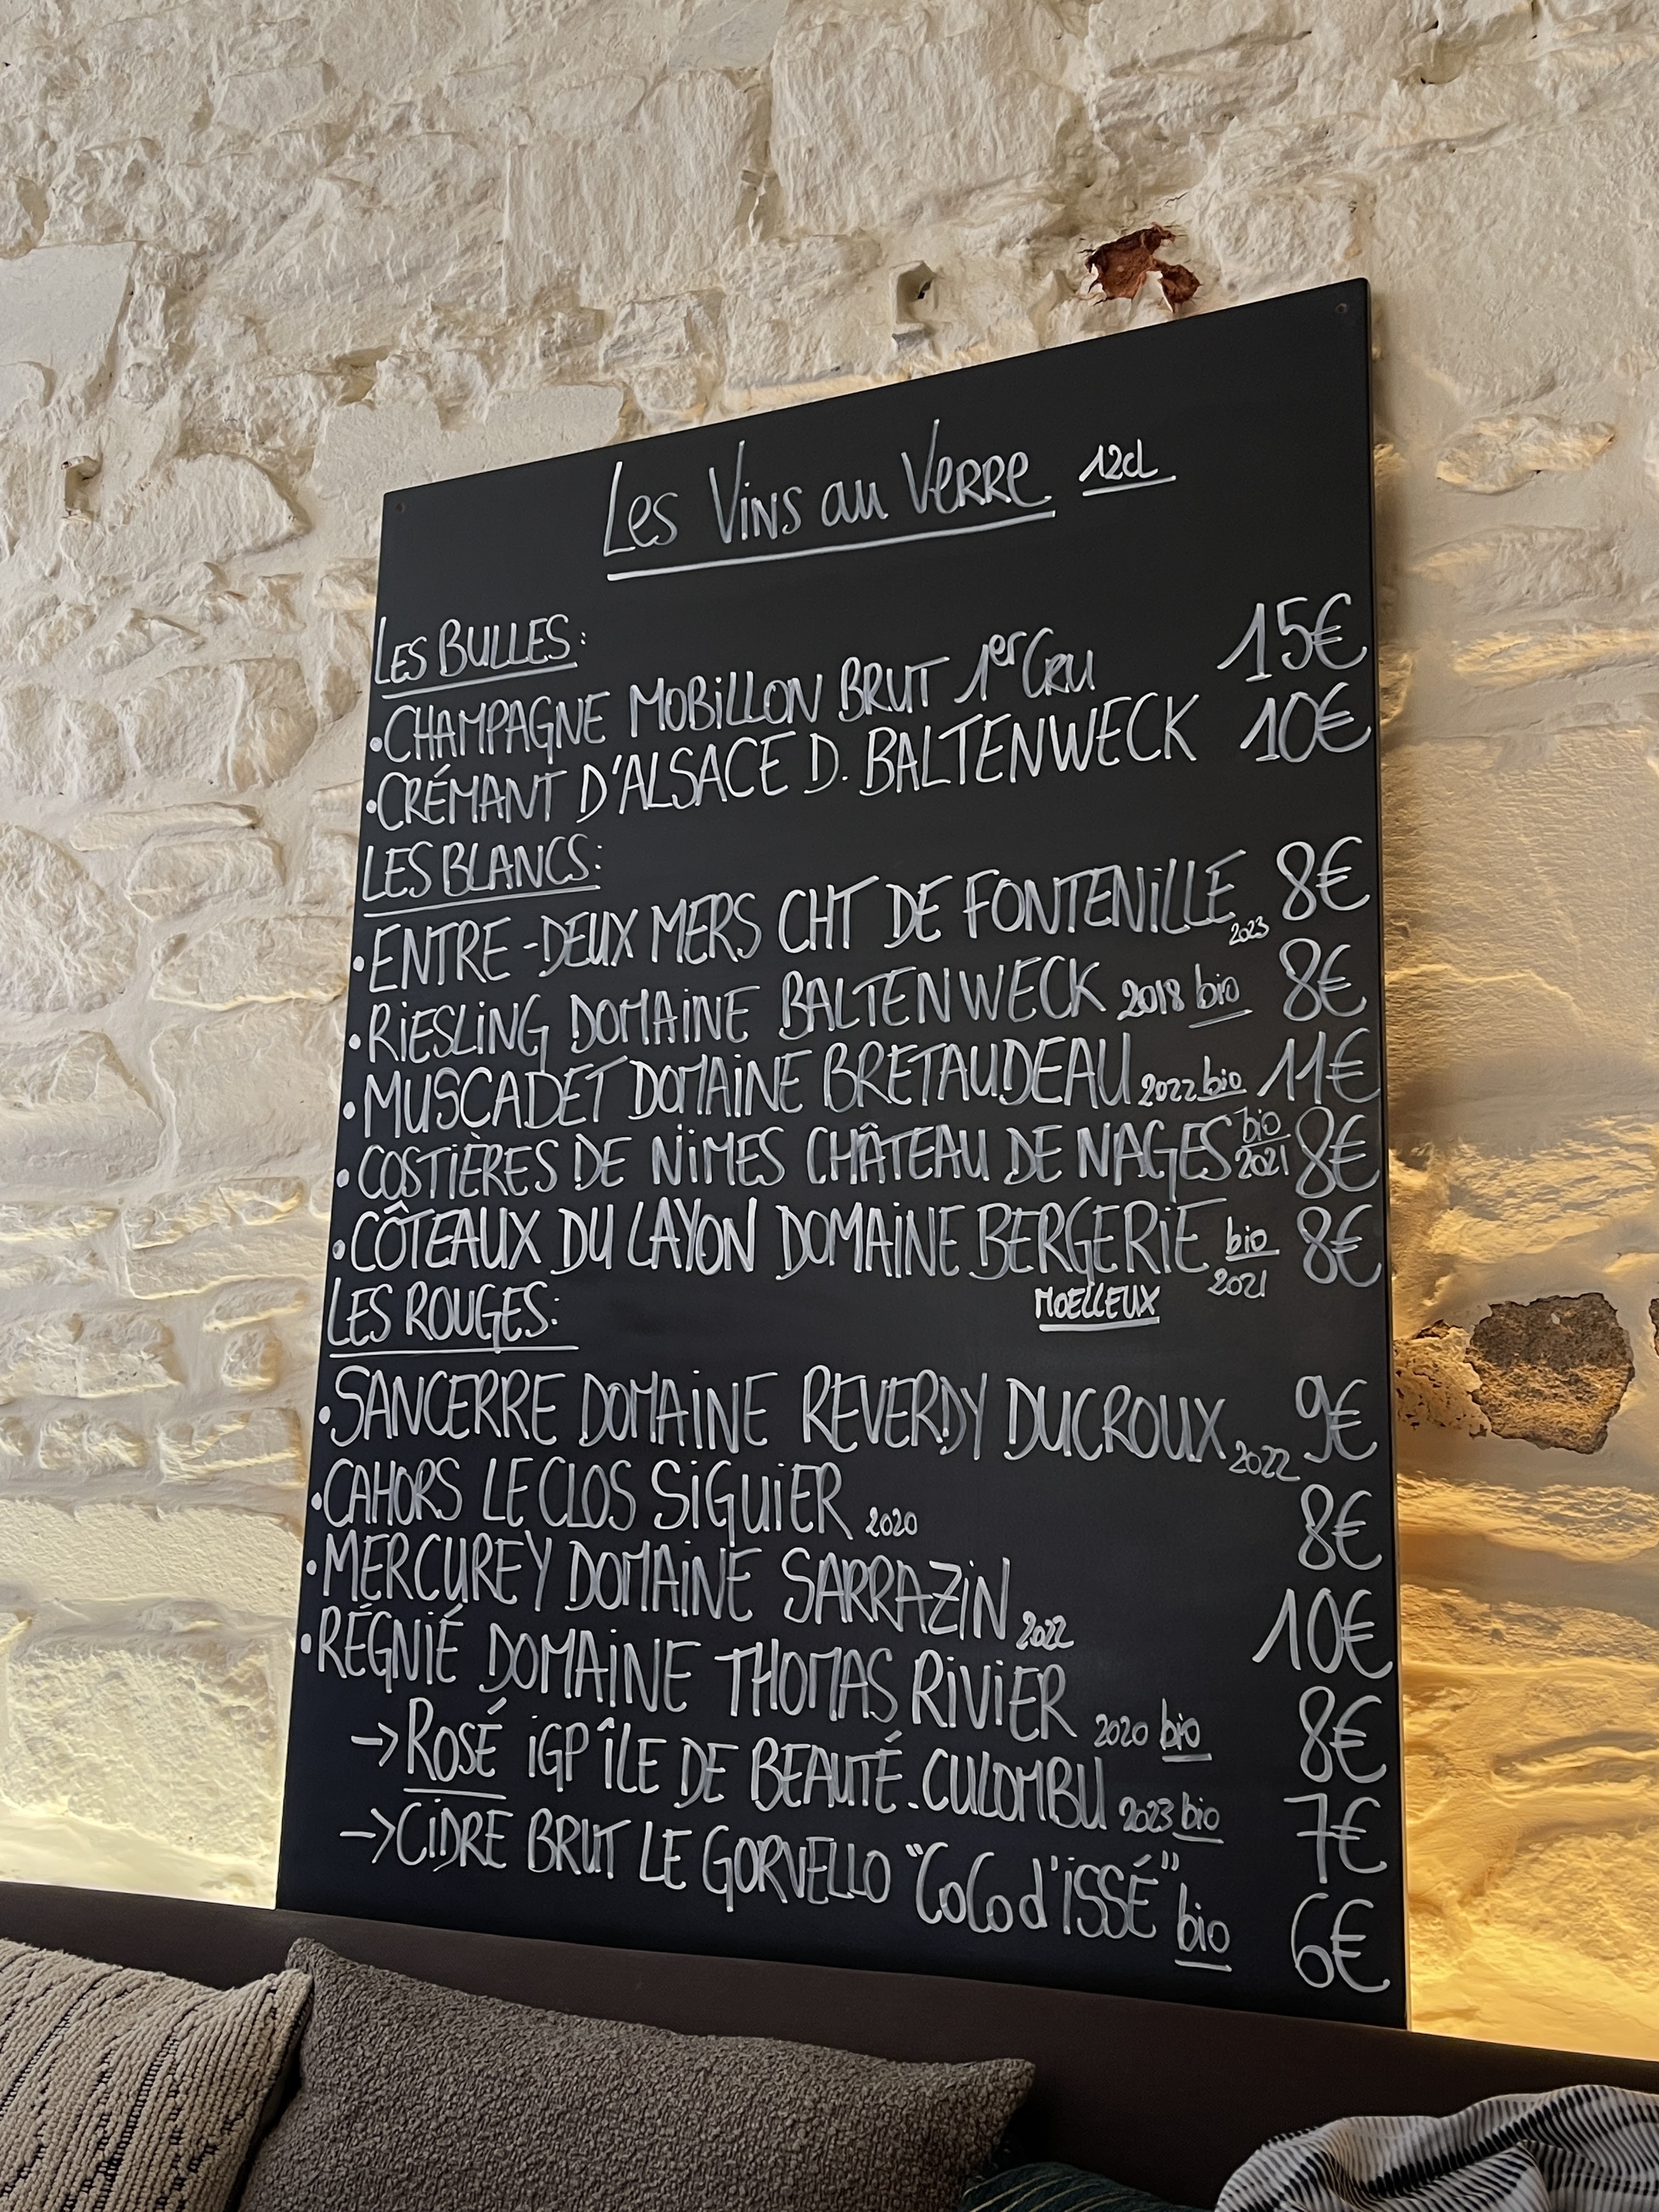 Les Vins au Verre 12cl
Les Bulles:
•CHAMPAGNE MOBILLON BRUT 1er Cru 15€
•CRÉMANT D'ALSACE D. BALTENWECK 10€
LES BLANCS:
•ENTRE-DEUX MERS CHT DE FONTENILLE 2023 8€
•RIESLING DOMAINE BALTENWECK 2018 bio 8€
•MUSCADET DOMAINE BRETAUDEAU 2022 bio 11€
•COSTIÈRES DE NIMES CHÂTEAU DE NAGES bio 2021 8€
•CÔTEAUX DU LAYON DOMAINE BERGERIE bio 2021 8€
MOELLEUX
LES ROUGES:
•SANCERRE DOMAINE REVERDY DUCROUX 2022 9€
•CAHORS LE CLOS SIGUIER 2020 8€
•MERCUREY DOMAINE SARRAZIN 2022 10€
•RÉGNIÉ DOMAINE THOMAS RIVIER 2020 bio 8€
->ROSÉ IGP ÎLE DE BEAUTÉ. CULOMBU 2023 bio 7€
->CIDRE BRUT LE GORVELLO "CoCo d'ISSÉ" bio 6€